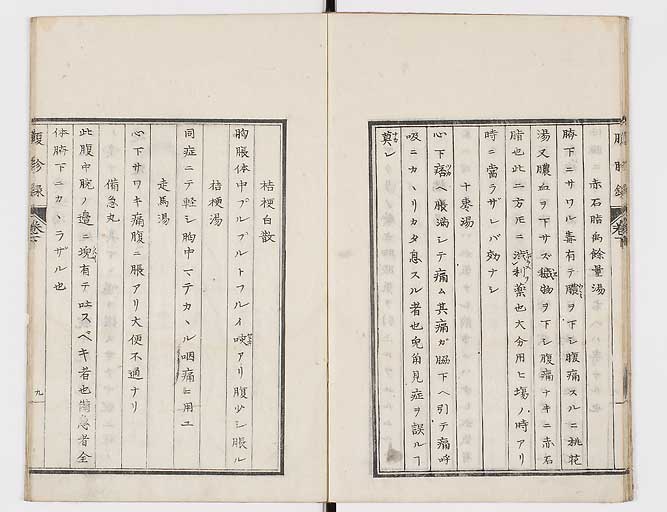 赤石脂禹餘量湯
臍下ニサワル毒有テ膿ヲ下シ腹痛スルニ桃花
湯又膿血ヲ下サズ穢物ヲ下シ腹痛ナキニ赤石
脂也此二方圧ニ瀉利ノ薬也大分用ヒ塲ノ時アリ
時ニ當ラザレバ効ナシ
十棗湯
心下痞ヘ脹満シテ痛ム其痛ガ脇下ヘ引テ痛呼
吸ニカヽリカタ息スル者也皃角見症ヲ誤ルヿ
莫レ
桔梗白散
胸脹体中プルプルトフルイ咳アリ腹少シ脹ル
桔梗湯
同症ニテ軽シ胸中マテカヽル咽痛ニ用ユ
走馬湯
心下サワキ痛腹ニ脹アリ大便不通ナリ
備急丸
此腹中脘ノ邉ニ塊有テ吐スベキ者也備急者全
体臍下ニカヽラザル也
腹診録
巻下
九